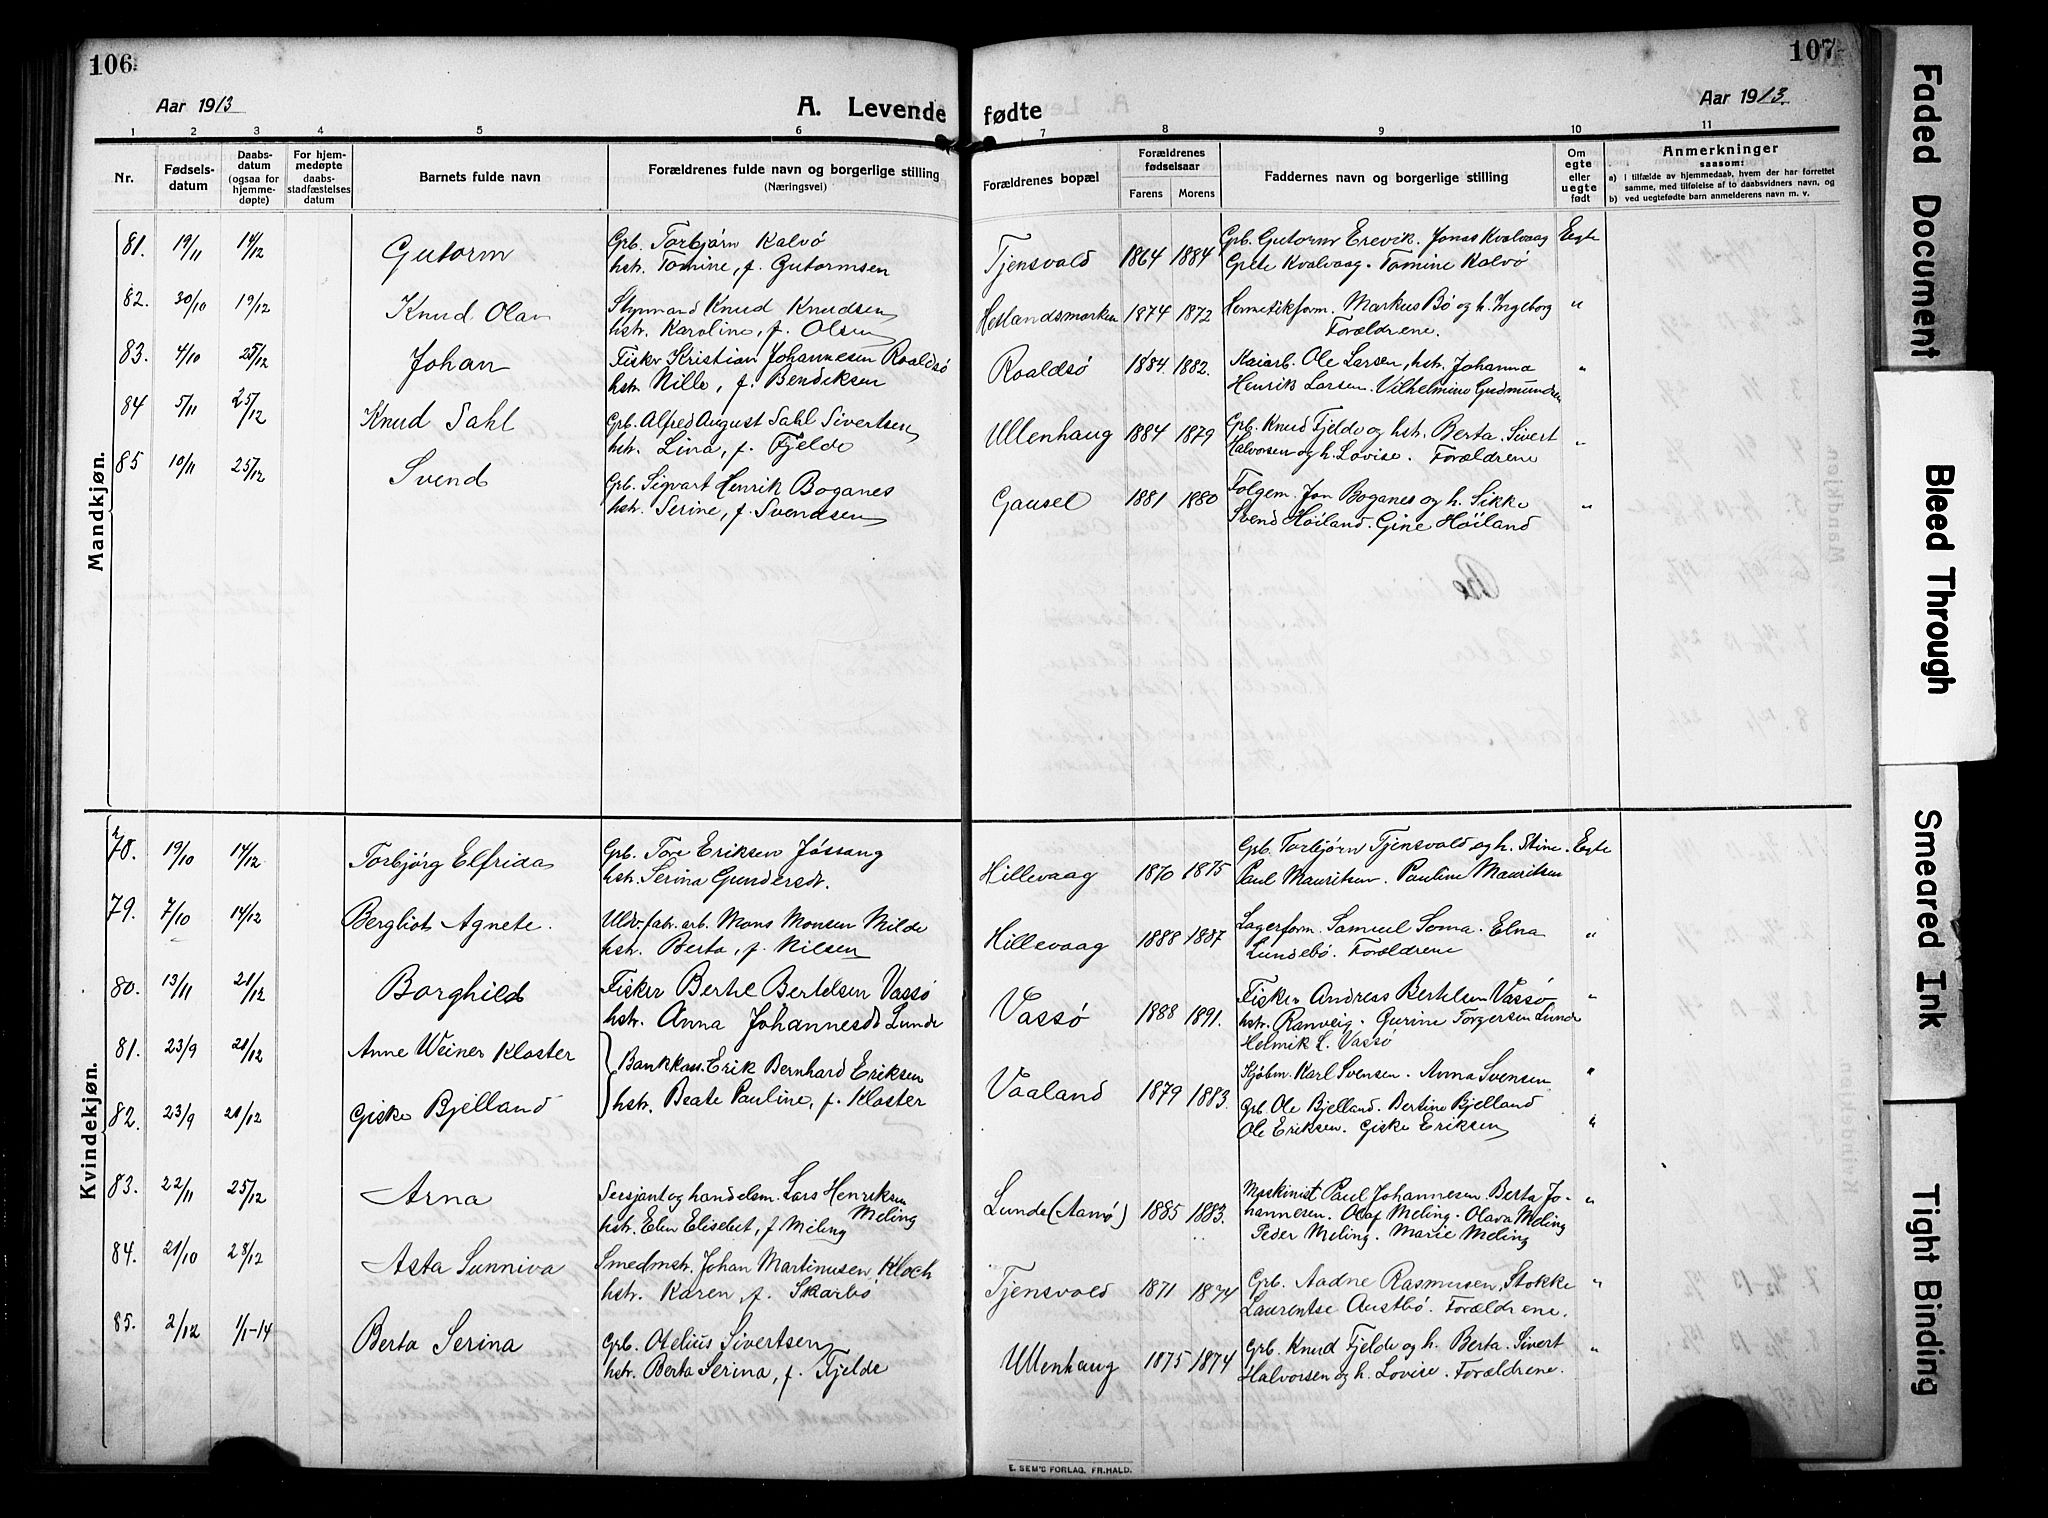 106
Aar 1913
A. Levende
1 2 3 4 5 6
Nr.
Fødsels-
datum
Daabs-
datum
(ogsaa for
hjemme-
døpte)
For hjem-
medøpte
daabs-
stadfæstelses
datum
Barnets fulde navn
Forældrenes fulde navn og borgerlige stilling
(Næringsvei)
Mandkjøn.
81. 19/11 14/12 Gutorm Grb. Torbjørn Kalvø
hstr. Tomine, f. Gutormsen
82. 30/10 19/12 Knud Olav Styrmand Knud Knudsen
hstr. Karoline, f. Olsen
83. 4/10 25/12 Johan Fisker Kristian Johannesen Roaldsø
hstr. Nille, f. Bendiksen
84 5/11 25/12 Knud Sahl Grb. Alfred August Sahl Sivertsen
hstr. Lina, f. Fjelde
85 10/11 25/12 Svend Grb. Sigvart Henrik Boganes
hstr. Serine, f. Svendsen
Kvindekjøn.
78. 19/10 14/12 Torbjørg Elfrida Grb. Tore Eriksen Jøssang
hstr. Serina Gundersdt.
79. 7/10 14/12 Bergliot Agnete. Uldv.fabr. arb. Mons Monsen Milde
hstr. Berta, f. Nilsen
80. 13/11 21/12 Borghild Fisker Bertel Bertelsen Vassø
hstr. Anna Johannesdt Lunde
81. 23/9 21/12 Anne Weiner Kloster Bankkass. Erik Bernhard Eriksen
82. 23/9 21/12 Giske Bjelland hstr. Beate Pauline, f. Kloster
83. 22/11 25/12 Arna Sersjant og handelsm. Lars Henriksen
Meling
hstr. Elen Elisebet, f. Meling
84. 21/10 28/12 Asta Sunniva Smedmstr. Johan Martinusen Kloch
hstr. Karen, f. Skaarbø
85. 2/12 1/1-14 Berta Serina Grb. Otelius Sivertsen
hstr. Berta Serina, f. Fjelde
107
fødte
Aar 1913.
7 8 9 10 11
Forældrenes bopæl
Forældrenes
fødselsaar
Farens Morens
Faddernes navn og borgerlige stilling
Om
egte
eller
uegte
født
Anmerkninger
saasom:
a) I tilfælde av hjemmedaab, hvem der har forrettet
samme, med tilføielse af to daabsvidners navn, og
b) ved uegtefødte barn anmelderens navn m. v.
Tjensvold 1864 1884 Grb. Gutorm Erevik. Jonas Kvalvaag Egte
Grete Kvalvaag. Tomine Kalvø
Hetlandsmarken 1874 1872 Hermetikform. Markus Bø og h. Ingeborg "
Forældrene.
Roaldsø 1884. 1882. Kaiarb. Ole Larsen, hstr. Johanna "
Henrik Larsen. Vilhelmine Gudmundsen
Ullenhaug 1884 1879 Grb. Knud Fjelde og hstr. Berta. Sivert "
Halvorsen og h. Lovise. Forældrene
Gausel 1881 1880 Folgem. Jon Boganes og h. Sikke "
Svend Høiland. Gine Høiland
Hillevaag 1870 1875 Grb. Torbjørn Tjensvold og h. Stine. Egte
Paul Mauritsen. Pauline Mauritsen
Hillevaag 1888 1887 Lagerform. Samuel Soma. Elna "
Lundebø. Forældrene
Vassø 1888 1891. Fisker Andreas Bertelsen Vassø "
hstr. Ranveig. Gurine Torgersen Lunde
Helmik L. Vassø
Vaaland 1879 1883. Kjøbm. Karl Svensen. Anna Svensen "
Grb. Ole Bjelland. Bertine Bjelland
Ole Eriksen. Giske Eriksen "
Lunde (Aamø) 1885 1883. Maskinist Paul Johannesen. Berta Jo- "
hannesen. Olaf Meling. Olava Meling
Peder Meling. Marie Meling
Tjensvold 1871 1874 Grb. Aadne Rasmussen, Stokke "
Laurentse Austbø. Forældrene.
Ullenhaug 1875 1874 Grb. Knud Fjelde og h. Berta. Sivert "
Halvorsen og h. Lovise. Forældrene.
E. SEM'S FORLAG, FR.HALD.
Faded Document
Bleed Through
Smeared Ink
Tight Binding